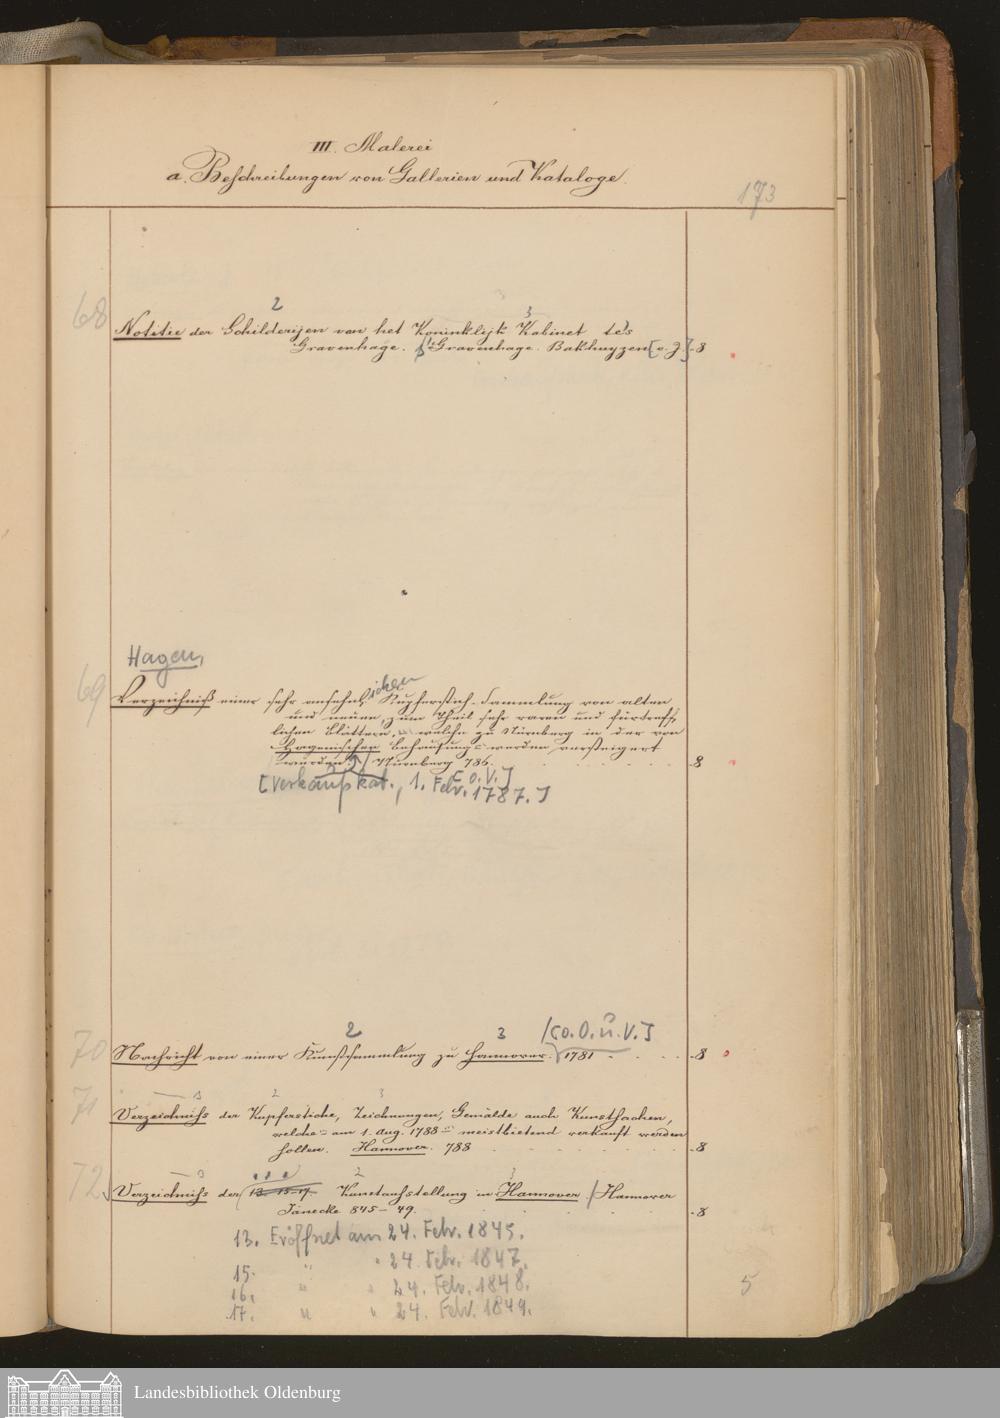 III. Malerei
a. Beschreibungen von Gallerien und Kataloge.
173
68
2
3
3
Notitie der Schilderijen van het Koninklijk Kabinet te's
Gravenhage. s'Gravenhage. Bakhuyzen [o. J.] 8
Hagen,
69
Verzeichniß einer sehr ansehnlichen Kupferstich-Sammlung von alten
und neuen, zum Theil sehr raren und fürtreff-
lichen Blättern, welche zu Nürnberg in der von
Hagenischen Behausung = werden versteigert
werden. Nürnberg 786. 8
[o. V.]
[Verkaufskat., 1. Febr. 1787.]
2
3
[o. O. u. V.]
70
Nachricht von einer Kunstsammlung zu Hannover. 1781 8
71
3
2
3
Verzeichniss der Kupferstiche, Zeichnungen, Gemälde auch Kunstsachen,
welche = am 1. Aug. 1788 = meistbietend verkauft werden
sollen. Hannover. 788 8
72
3
2
3
Verzeichniss der 13. 15-17. Kunstausstellung in Hannover / Hannover
Jänecke 845-49. 8
13. Eröffnet am 24. Febr. 1845.
15. " " 24. Febr. 1847.
16. " " 24. Febr. 1848.
17. " " 24. Febr. 1849.
5
Landesbibliothek Oldenburg